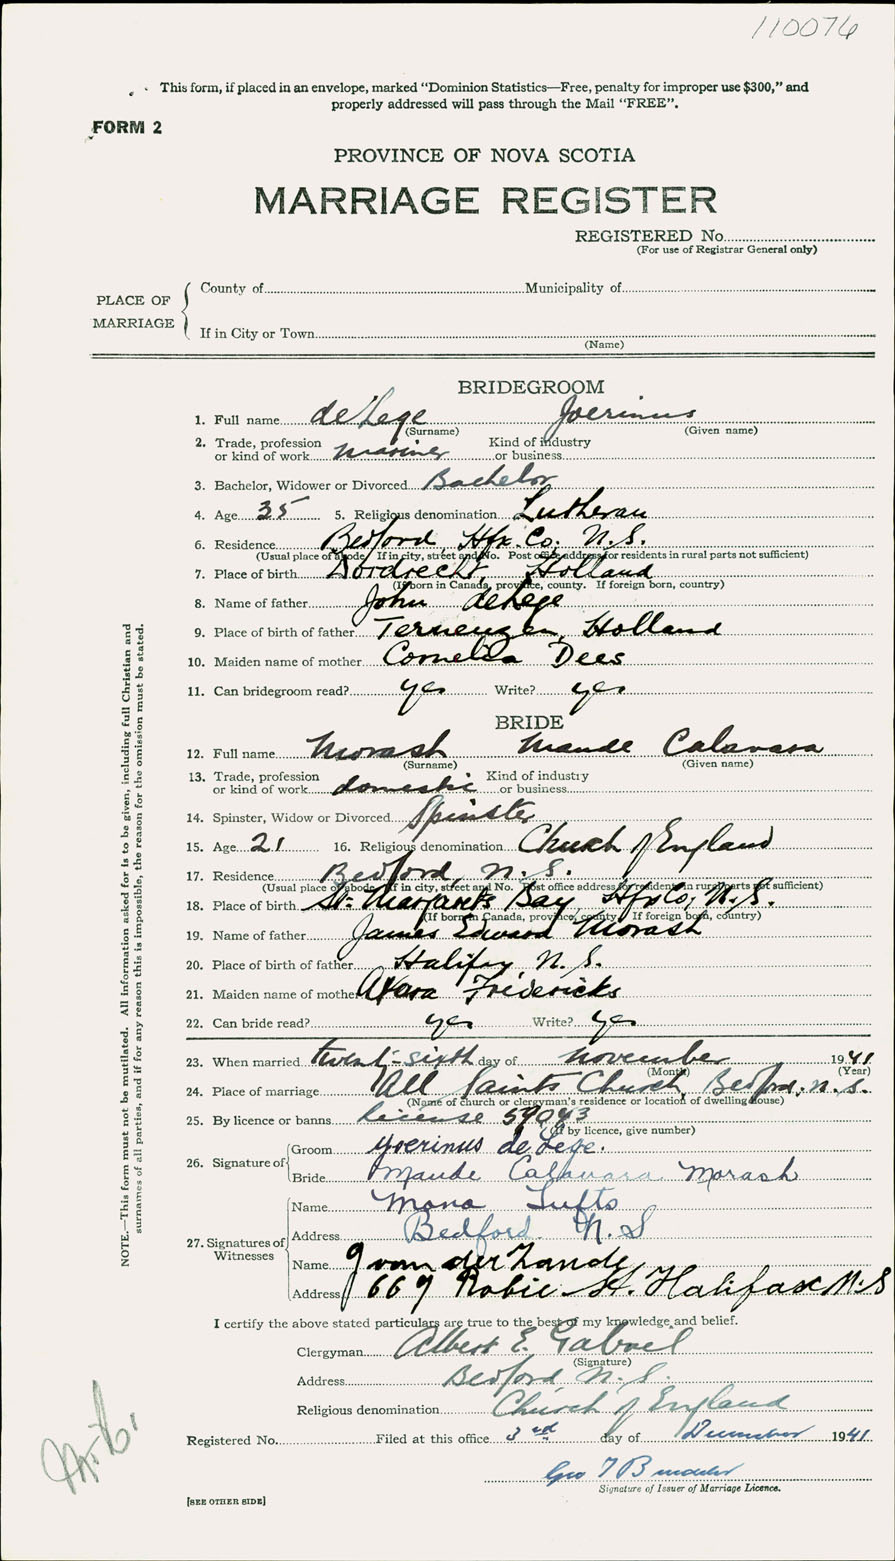 110076
This form, if placed in an envelope, marked "Dominion Statistics—Free, penalty for improper use $300," and
properly addressed will pass through the Mail "FREE".
FORM 2
PROVINCE OF NOVA SCOTIA
MARRIAGE REGISTER
REGISTERED No.
(For use of Registrar General only)
PLACE OF MARRIAGE
County of Municipality of
If in City or Town
(Name)
BRIDEGROOM
1. Full name de Lege Joerinus
(Surname) (Given name)
2. Trade, profession or kind of work mariner Kind of industry or business
3. Bachelor, Widower or Divorced Bachelor
4. Age 35 5. Religious denomination Lutheran
6. Residence Bedford, Hfx. Co. N.S.
(Usual place of abode. If in city, street and No. Post office address for residents in rural parts not sufficient)
7. Place of birth Dordrecht, Holland
(If born in Canada, province, county. If foreign born, country)
8. Name of father John deLege
9. Place of birth of father Terneuzen, Holland
10. Maiden name of mother Cornelia Dees
11. Can bridegroom read? yes Write? yes
BRIDE
12. Full name Morash Maude Calavara
(Surname) (Given name)
13. Trade, profession or kind of work domestic Kind of industry or business
14. Spinster, Widow or Divorced Spinster
15. Age 21 16. Religious denomination Church of England
17. Residence Bedford, N.S.
(Usual place of abode. If in city, street and No. Post office address for residents in rural parts not sufficient)
18. Place of birth St. Margarets Bay Hfx Co, N.S.
(If born in Canada, province, county. If foreign born, country)
19. Name of father James Edward Morash
20. Place of birth of father Halifax, N.S.
21. Maiden name of mother Fredericks
22. Can bride read? yes Write? yes
23. When married twenty-sixth day of November 1941
(Month) (Year)
24. Place of marriage All Saints Church, Bedford, N.S.
(Name of church or clergyman's residence or location of dwelling house)
25. By licence or banns License 59043
(If by licence, give number)
26. Signature of
Groom Joerinus de Lege.
Bride Maude Calavara Morash
27. Signatures of Witnesses
Name Mona Tufts
Address Bedford N.S
Name J van der Zande
Address 667 Robie St. Halifax N.S
I certify the above stated particulars are true to the best of my knowledge and belief.
Clergyman Albert E. Gabriel
(Signature)
Address Bedford N.S.
Religious denomination Church of England
Registered No. Filed at this office 3rd day of December 1941
Geo T
Signature of Issuer of Marriage Licence.
[SEE OTHER SIDE]
NOTE.—This form must not be mutilated. All information asked for is to be given, including full Christian and
surnames of all parties, and if for any reason this is impossible, the reason for the omission must be stated.